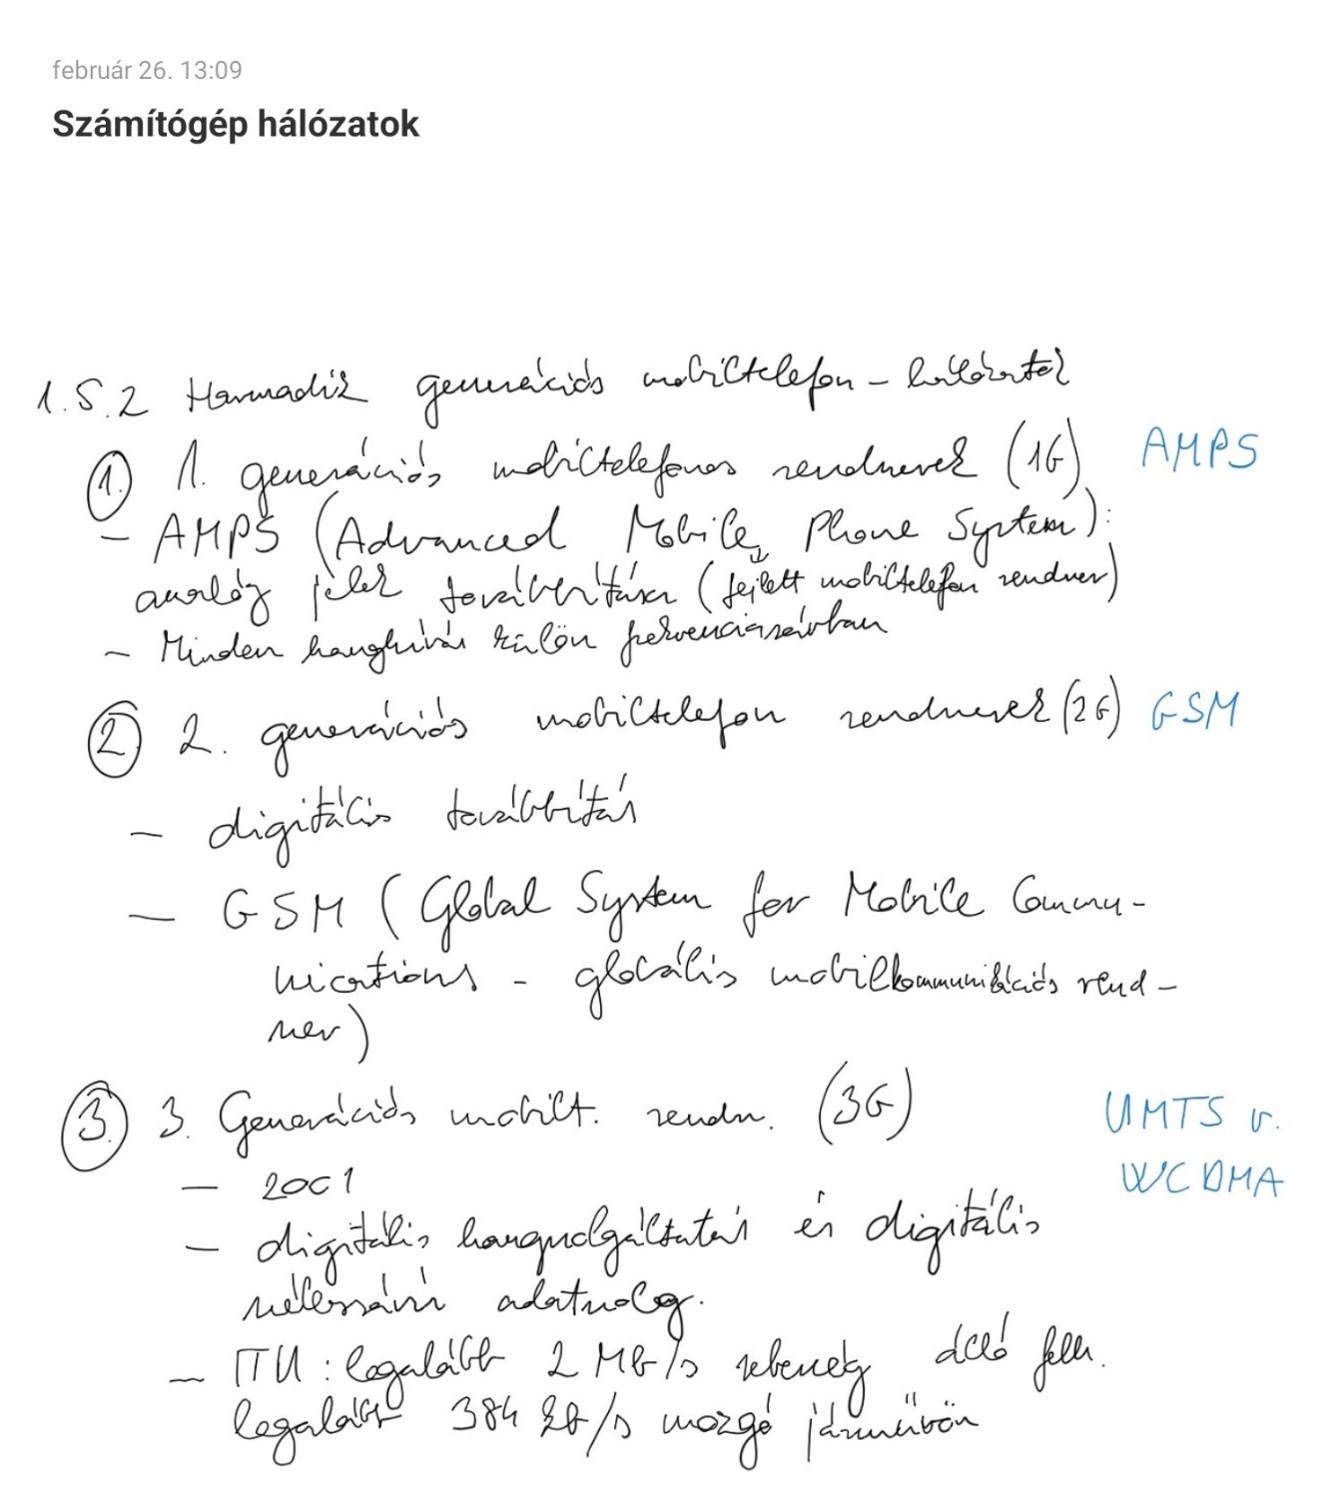 február 26. 13:09
Számítógép hálózatok
1.5.2 Harmadik generációs mobiltelefon-hálózatok
① 1. generációs mobiltelefonos rendszerek (1G) AMPS
- AMPS (Advanced Mobile Phone System):
analóg jelek továbbítása (fejlett mobiltelefon rendszer)
- Minden hanghívás külön frekvenciasávban
② 2. generációs mobiltelefon rendszerek (2G) GSM
- digitális továbbítás
- GSM (Global System for Mobile Commu-
nications - globális mobilkommunikációs rend-
szer)
③ 3. Generációs mobilt. rendsz. (3G) UMTS v.
- 2001 WCDMA
- digitális hangszolgáltatás és digitális
szélessávú adatszolg.
- ITU: legalább 2 Mb/s sebesség álló felh.
legalább 384 kb/s mozgó járművön